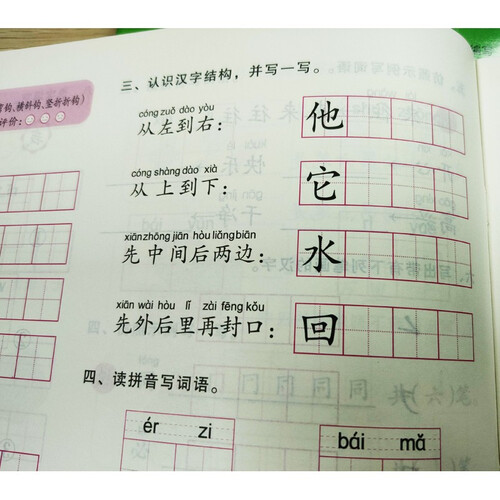 弯钩、横斜钩、竖折折钩)
评价:
三、认识汉字结构,并写一写。
cóng zuǒ dào yòu
从左到右: 他
cóng shàng dào xià
从上到下: 它
xiān zhōng jiān hòu liǎng biān
先中间后两边: 水
xiān wài hòu lǐ zài fēng kǒu
先外后里再封口: 回
四、读拼音写词语。
ér zi
bái mǎ